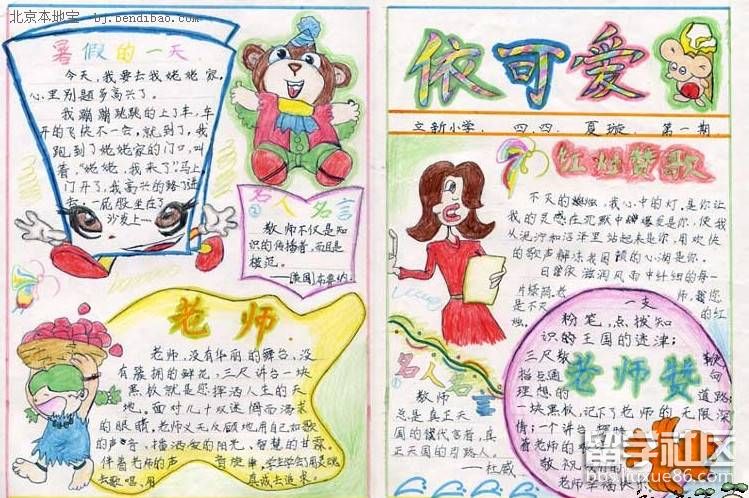 北京本地宝 - bj.bendibao.com
暑假的一天
今天,我要去我姥姥家,
心里别题多高兴了。
我蹦蹦跳跳的上了车,车
开的飞快不一会,就到了,我
跑到了姥姥家的门口,叫
着,“姥姥,我来了”马上,
门开了,我高兴的跨门进
去,一屁股坐在了
沙发上……
名人名言
②
教师不仅是知
识的传播者,而且是
模范。
老师
老师,没有华丽的舞台,没
有簇拥的鲜花,三尺讲台一块
黑板就是您挥洒人生的天
地。面对几十双迷惘而渴求
的眼睛,老师义无反顾地用自己如歌
的声音,播洒爱的阳光、智慧的甘霖。
伴着老师的声
去歌唱、用 真诚去追求。
依可爱
立新小学. 四.四. 夏璇. 第一期
红烛赞歌
不灭的蜡烛,我心中的灯,是你让
我的灵感在沉默中爆发是你,使我
从泥泞和沼泽里站起来是你,用欢快
的歌声解冻我困顿的心湖是你。
日曾依滋润风雨中纤细的每一
是不灭 一支 的红
烛。
粉笔,点拨知
识的王国的迷津;
三尺教
老师赞
理想的 道路;
一块黑板,记下了老师的无限深
情;一个讲台
着老师的
名人名言
①
教师
总是真正天
国的代言者,真
正天国的引路人。
——杜威
留学社区
liuxue86.com